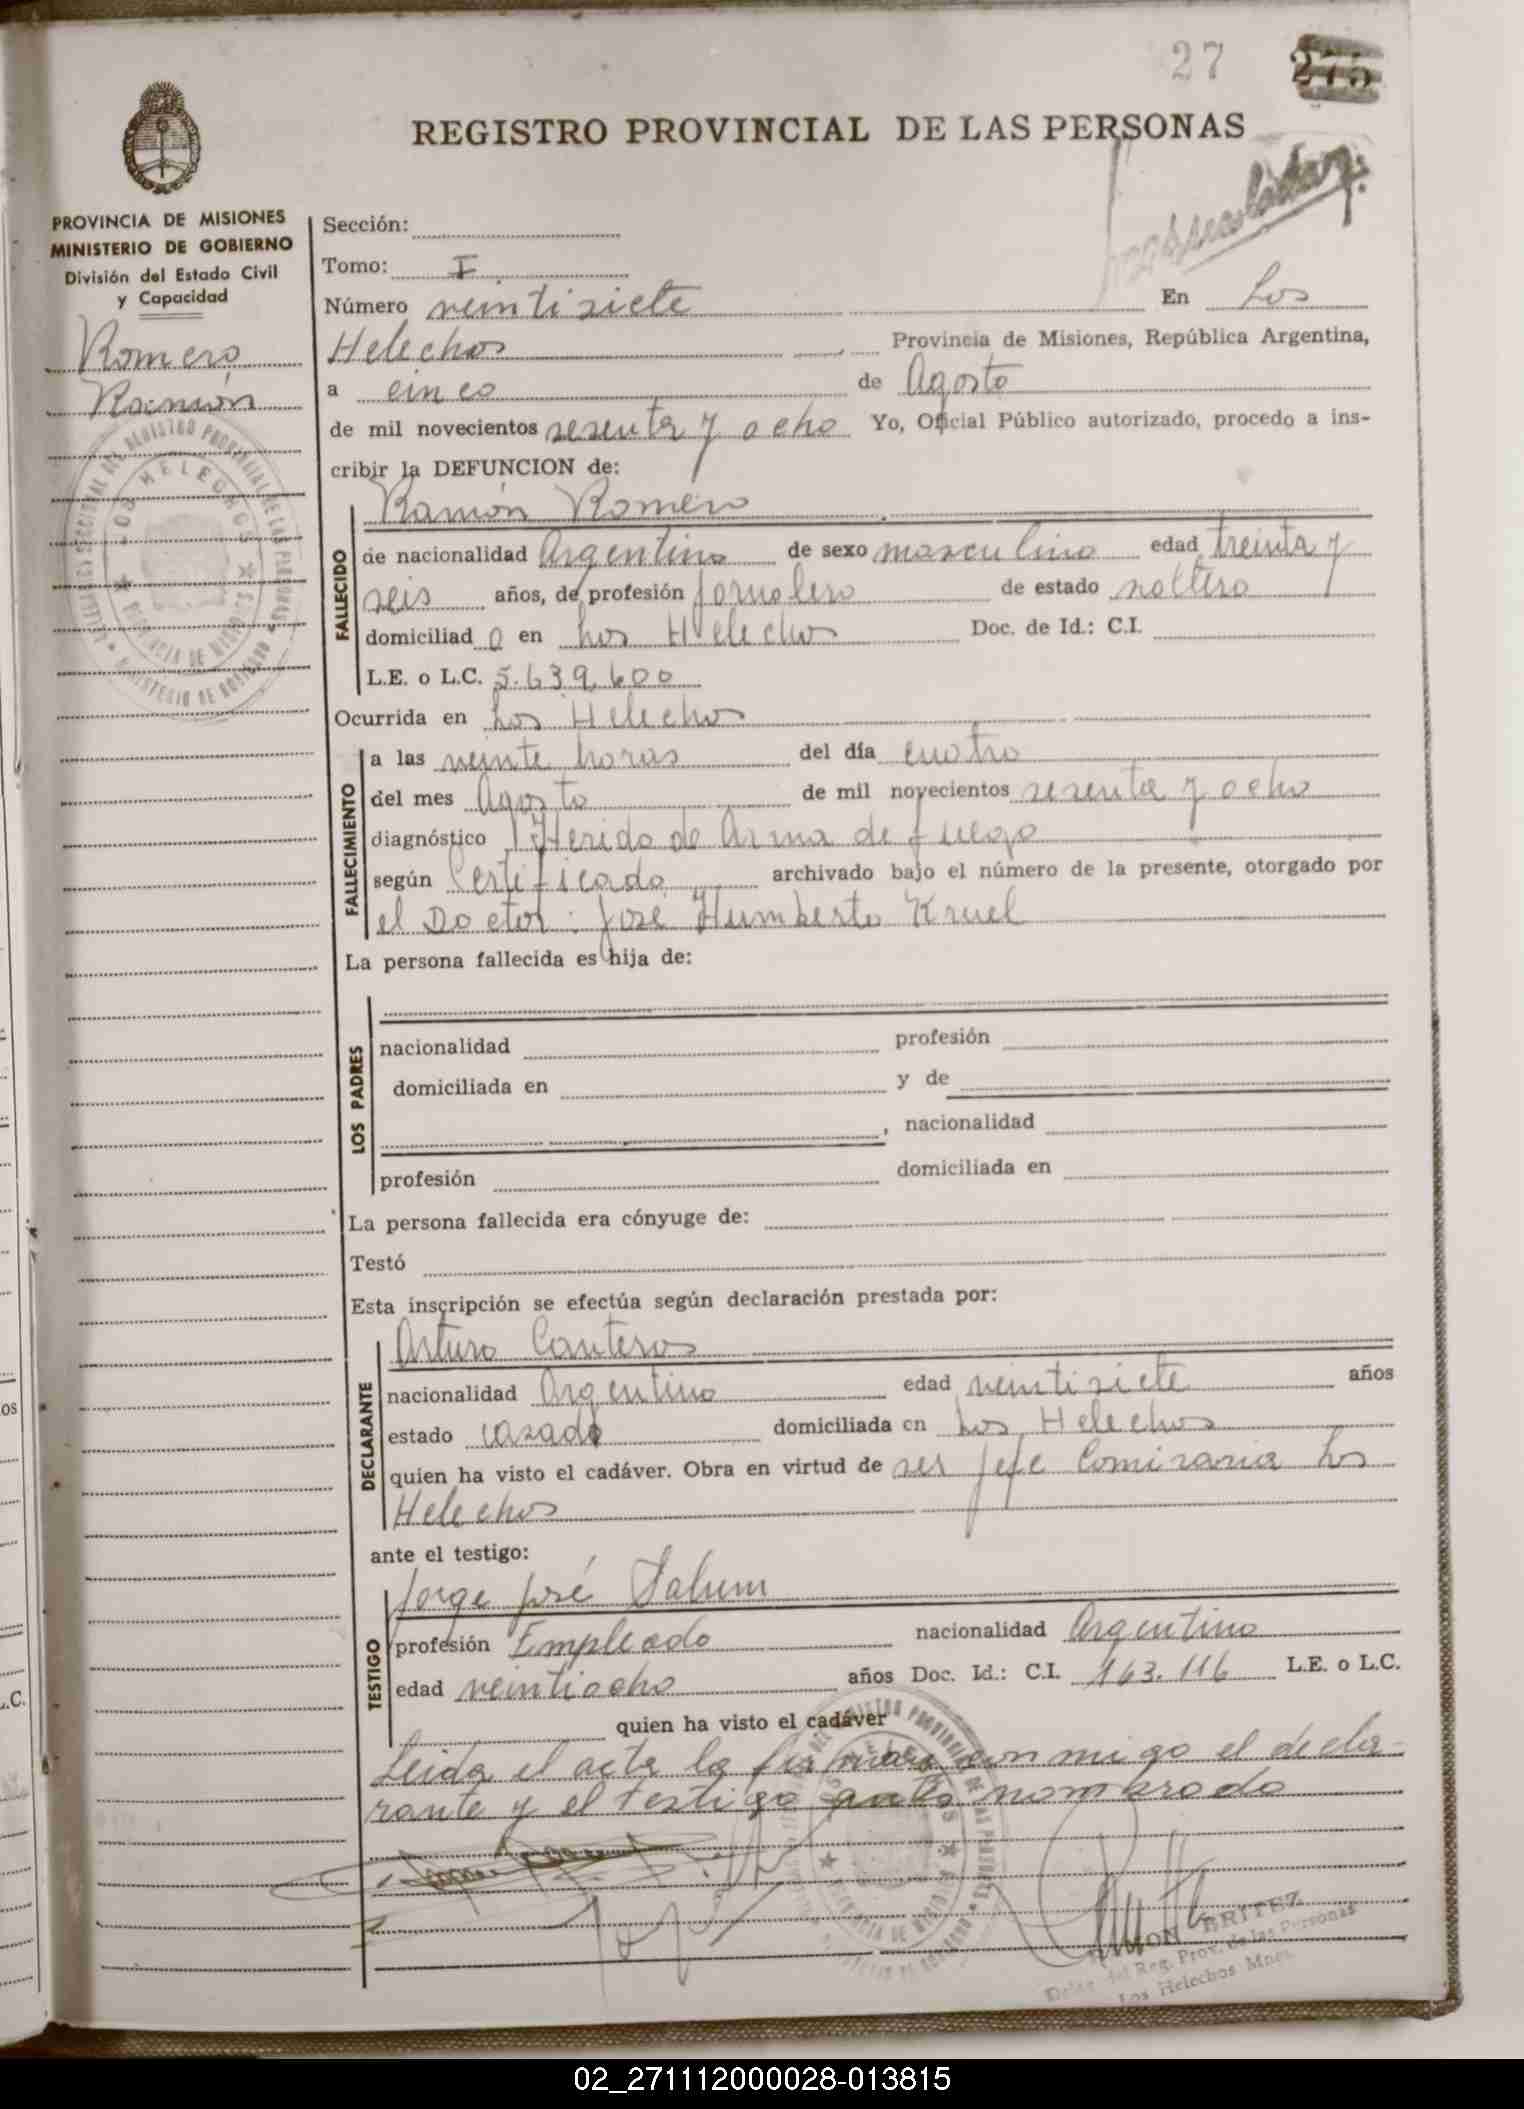 27 275
REGISTRO PROVINCIAL DE LAS PERSONAS
PROVINCIA DE MISIONES
MINISTERIO DE GOBIERNO
División del Estado Civil
y Capacidad
Romero
Ramón
Sección:
Tomo: I
Número veintisiete En Los
Helechos Provincia de Misiones, República Argentina,
a cinco de Agosto
de mil novecientos sesenta y ocho Yo, Oficial Público autorizado, procedo a ins-
cribir la DEFUNCION de:
FALLECIDO
Ramón Romero
de nacionalidad Argentino de sexo masculino edad treinta y
seis años, de profesión Jornalero de estado soltero
domiciliad o en Los Helechos Doc. de Id.: C.I.
L.E. o L.C. 5.639.600
Ocurrida en Los Helechos
FALLECIMIENTO
a las veinte horas del día cuatro
del mes Agosto de mil novecientos sesenta y ocho
diagnóstico Herida de Arma de fuego
según Certificado archivado bajo el número de la presente, otorgado por
el Doctor: José Humberto Kruel
La persona fallecida es hija de:
LOS PADRES
nacionalidad profesión
domiciliada en y de
, nacionalidad
profesión domiciliada en
La persona fallecida era cónyuge de:
Testó
Esta inscripción se efectúa según declaración prestada por:
DECLARANTE
Arturo Canteros
nacionalidad Argentino edad veintisiete años
estado casado domiciliada en Los Helechos
quien ha visto el cadáver. Obra en virtud de ser Jefe Comisaria Los
Helechos
ante el testigo:
TESTIGO
Jorge José Salum
profesión Empleado nacionalidad Argentino
edad veintiocho años Doc. Id.: C.I. 163.116 L.E. o L.C.
quien ha visto el cadáver
Leida el acta la firman conmigo el decla-
rante y el testigo ante nombrado
RAMON BRITEZ
Deleg. del Reg. Prov. de las Personas
Los Helechos Mnes.
02_271112000028-013815